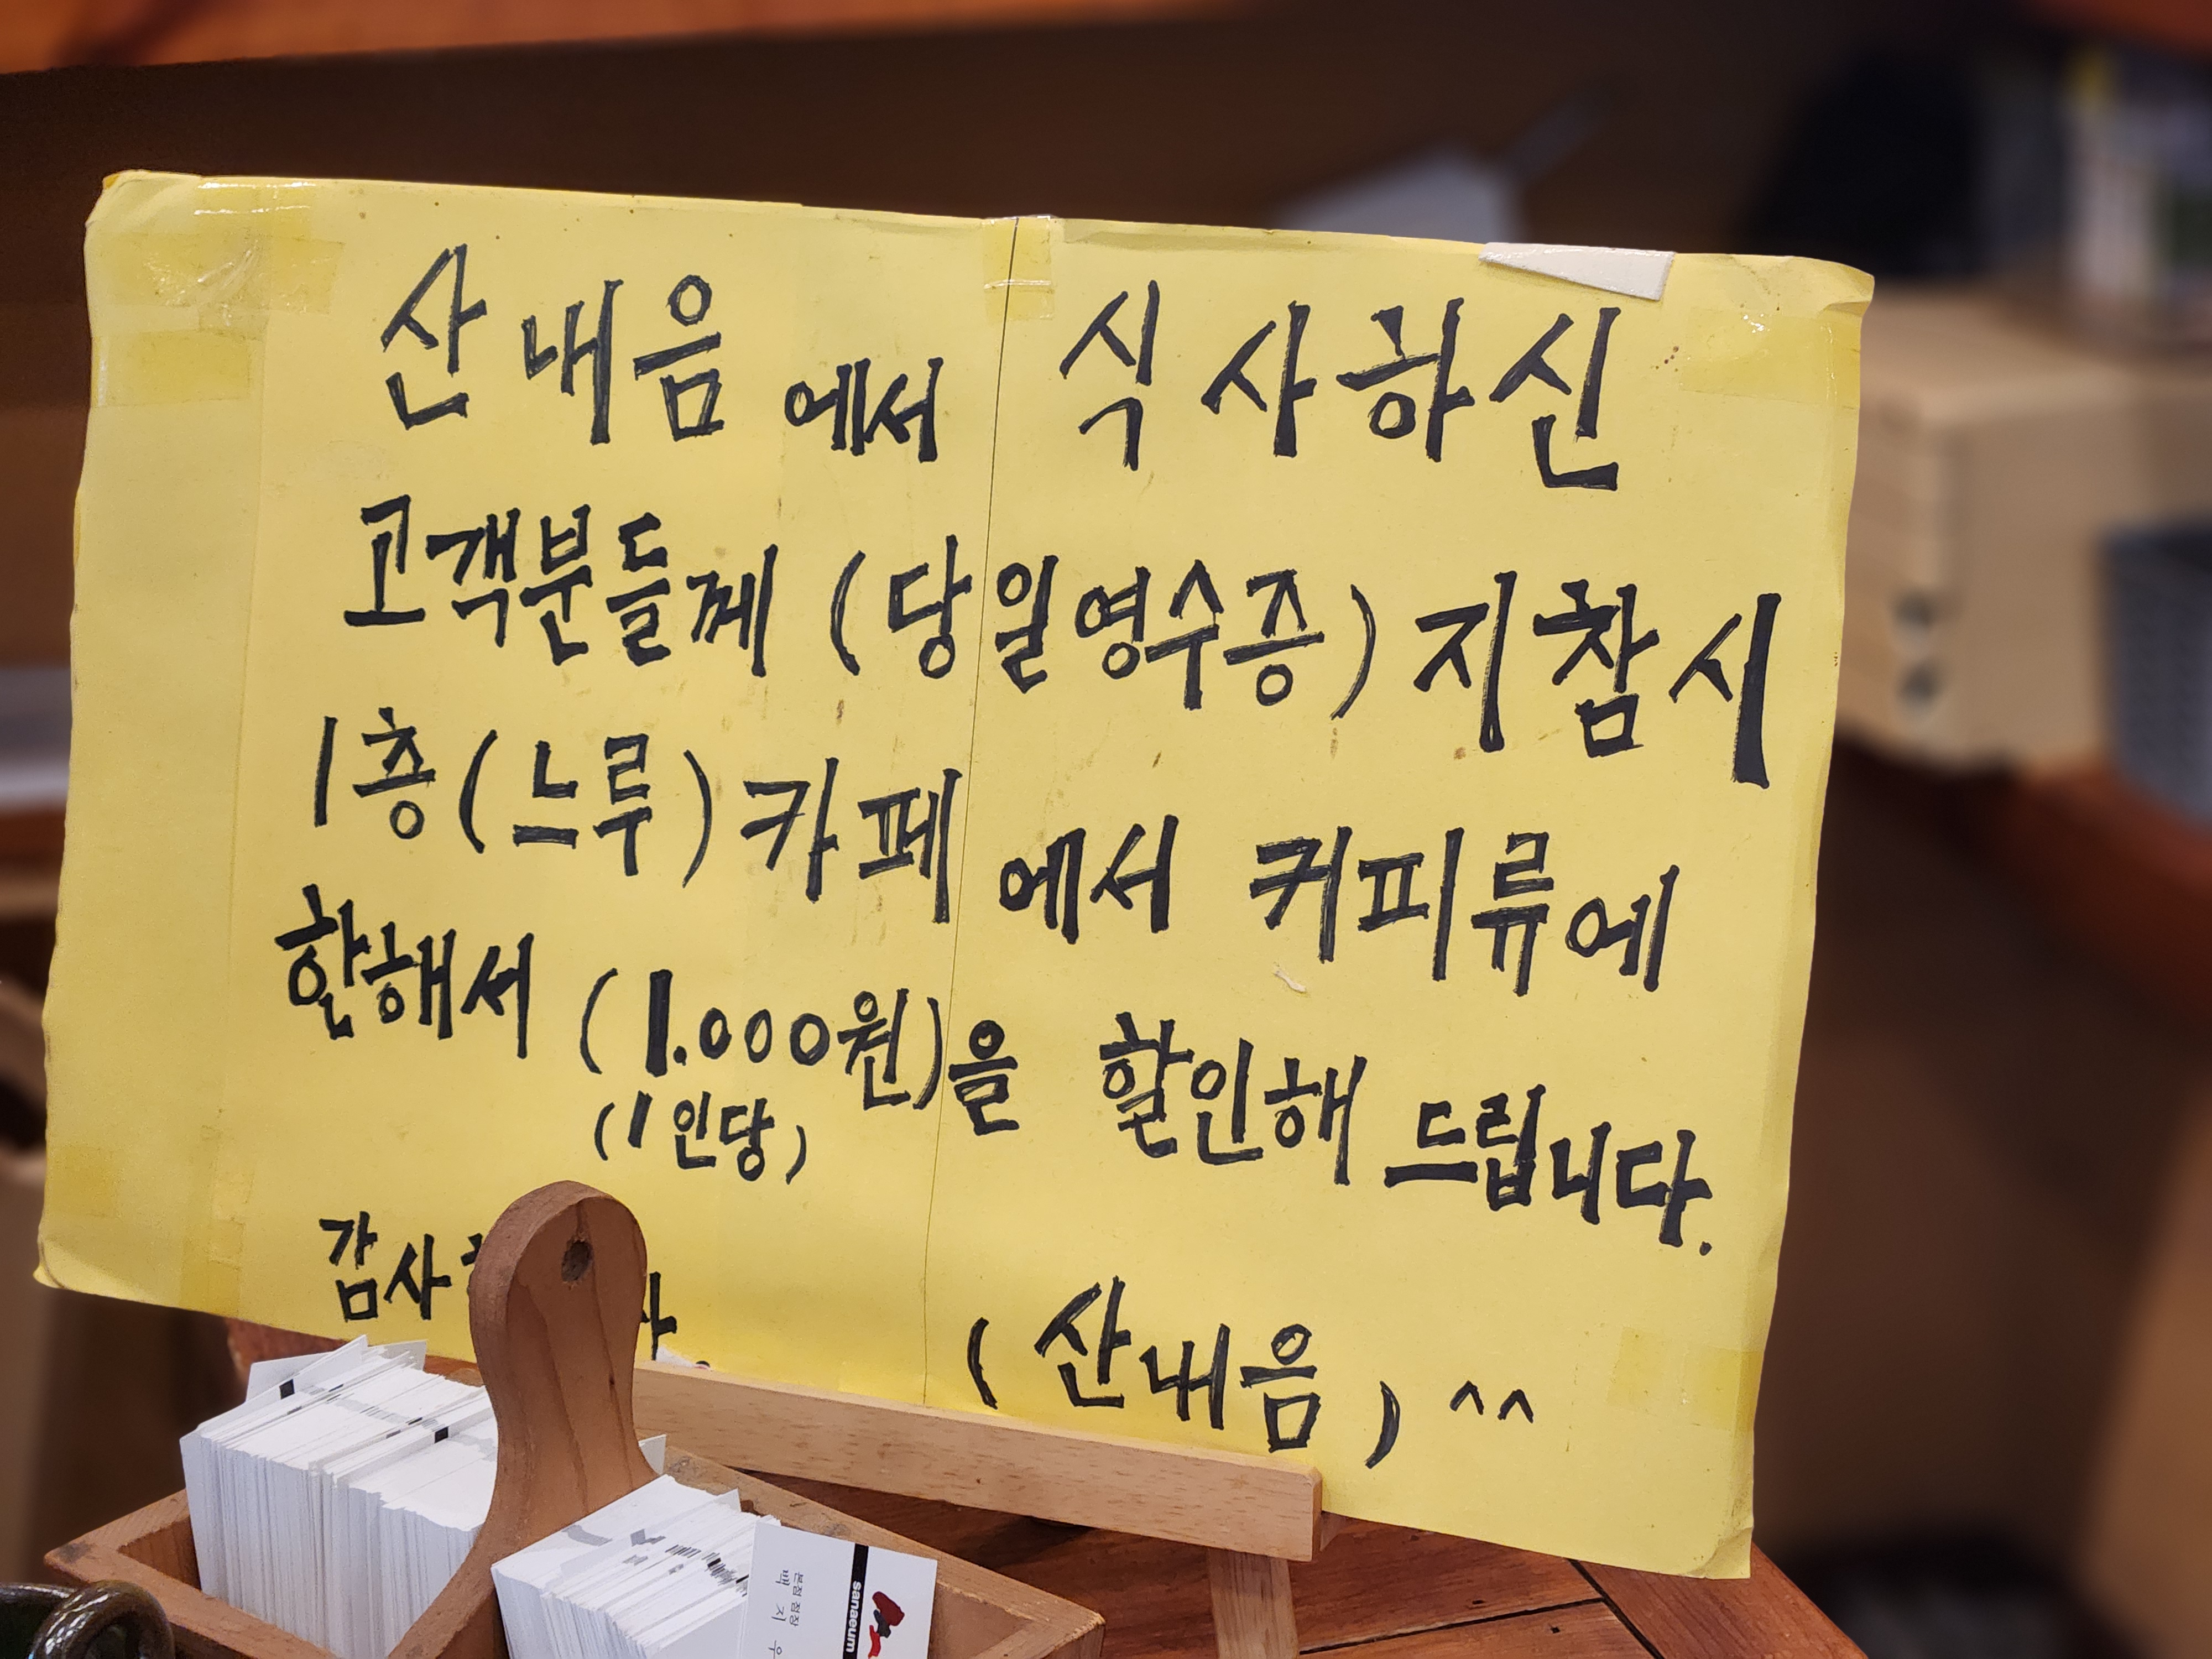 산내음에서 식사하신
고객분들께 (당일영수증) 지참시
1층(느루)카페에서 커피류에
한해서 (1.000원)을 할인해 드립니다.
(1인당)
감사
(산내음) ^^
sanaeum
본점점장
백 지 우